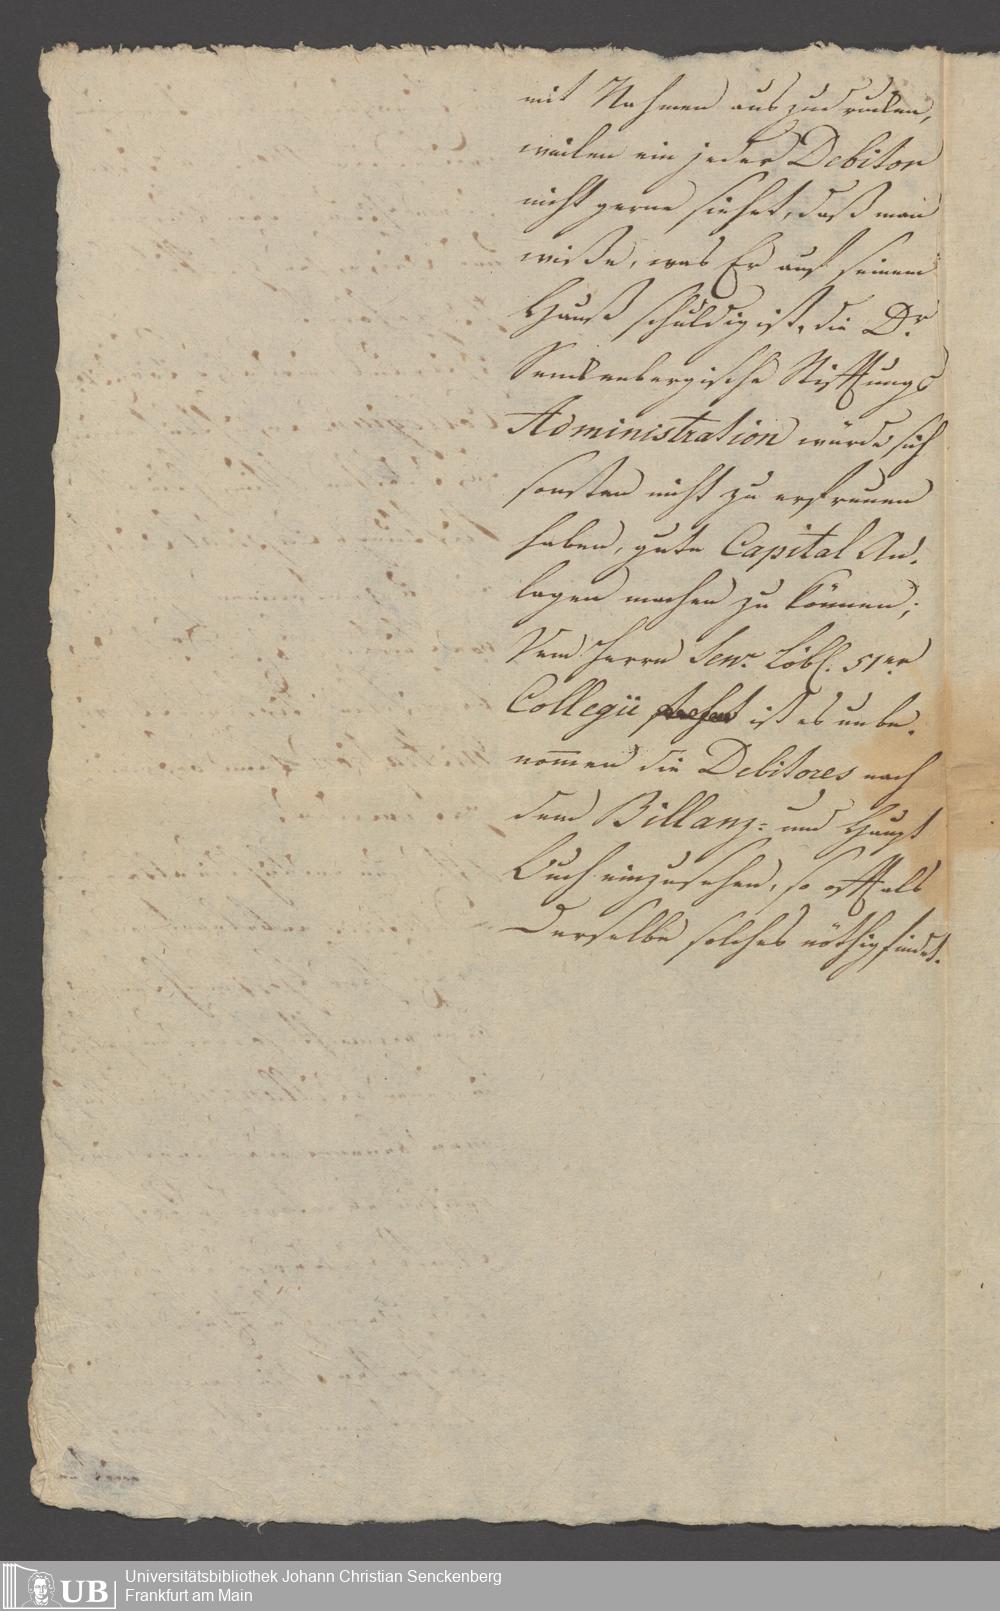 mit Nahmen auszudrucken,
weilen ein jeder Debitor
nicht gerne siehet, daß man
wiße, was Er auf seinem
Hauß schuldig ist, die Dr.
Senckenbergische Stifftungs
Administration würde sich
sonsten nicht zu erfreuen
haben, gute Capital An-
lagen machen zu können;
Dem Herrn Senr. Löbl. 51er
Collegii stehet ist es unbe-
nommen die Debitores nach
dem Billanz- und Haupt
Buch einzusehen, so offt als
Derselbe solches nöthig findet.
UB
Universitätsbibliothek Johann Christian Senckenberg
Frankfurt am Main